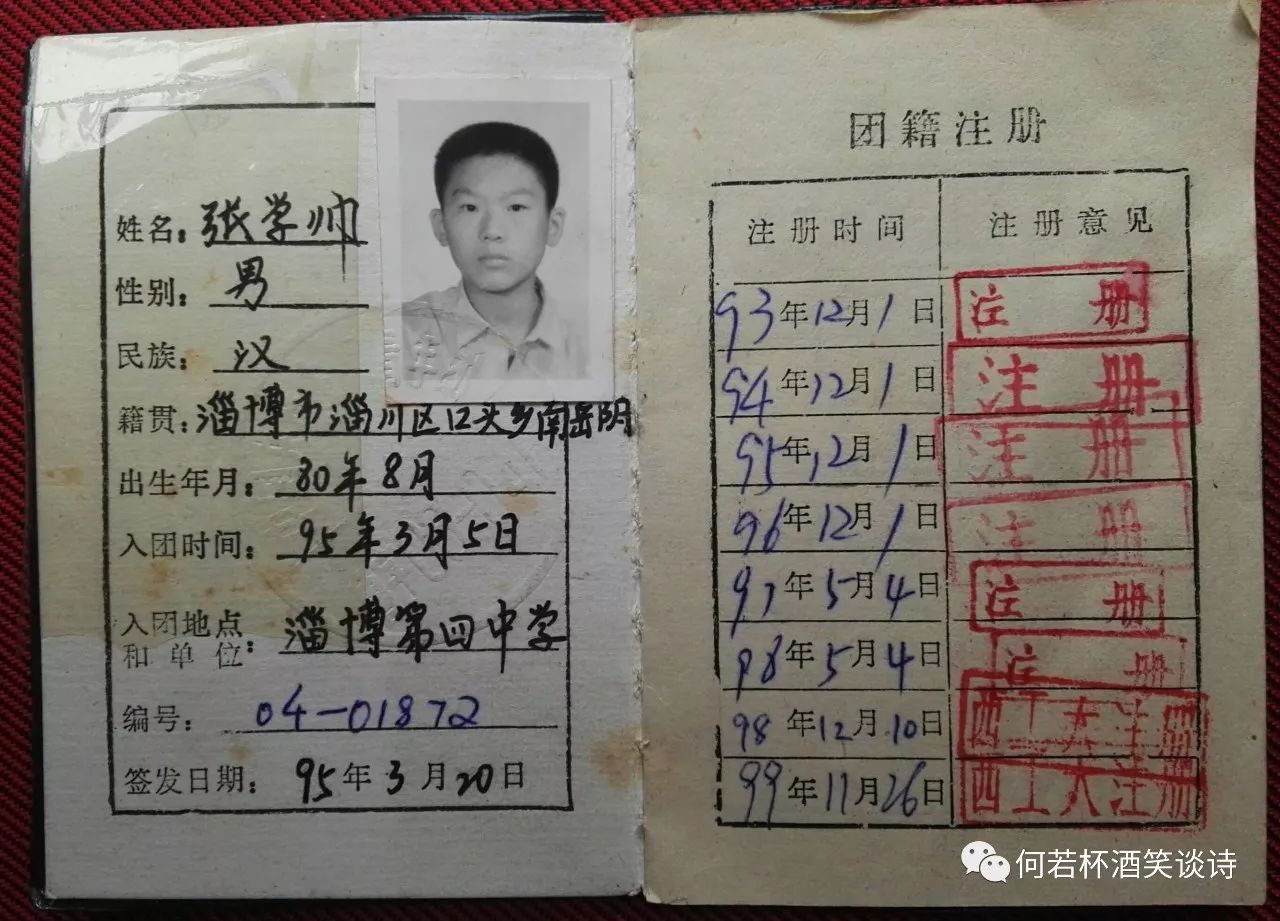 姓名：张学帅
性别：男
民族：汉
籍贯：淄博市淄川区口头乡南岳阴
出生年月：80年8月
入团时间：95年3月5日
入团地点和单位：淄博第四中学
编号：04-01872
签发日期：95年3月20日
团籍注册
注册时间 注册意见
93年12月1日 注册
94年12月1日 注册
95年12月1日 注册
96年12月1日 注册
97年5月4日 注册
98年5月4日 注册
98年12月10日 西工大注册
99年11月26日 西工大注册
何若杯酒笑谈诗